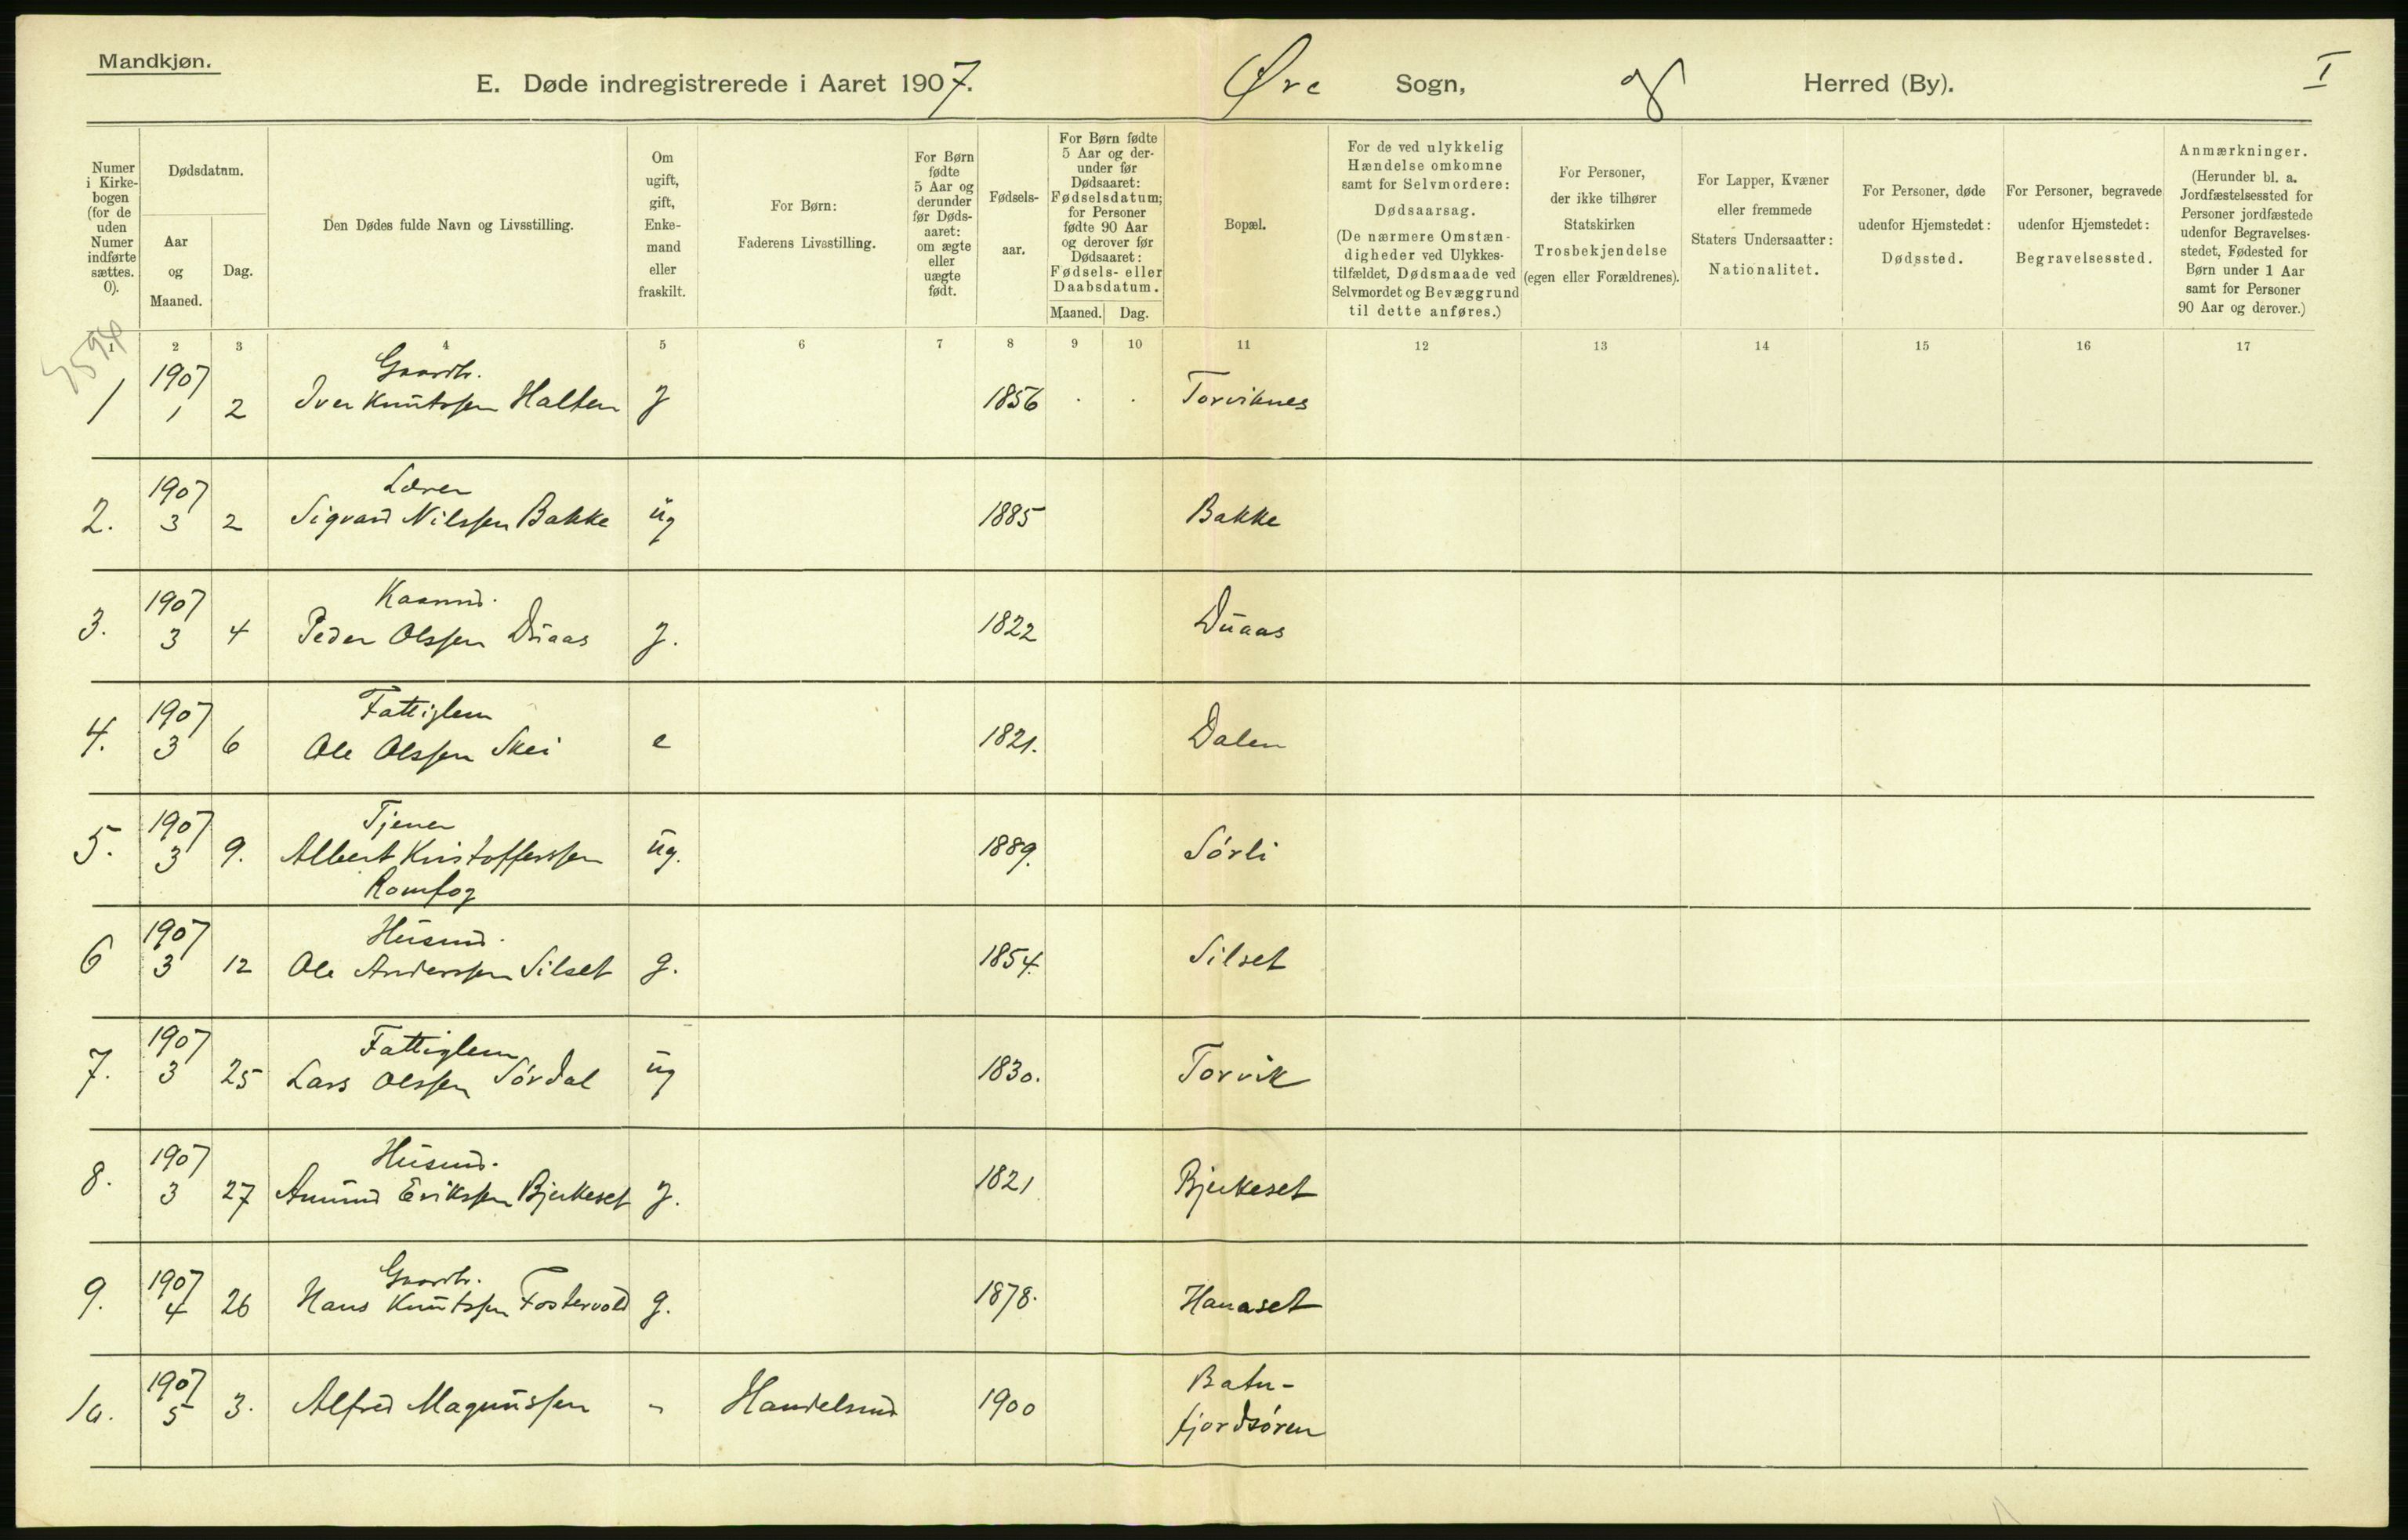 Mandkjøn.
E. Døde indregistrerede i Aaret 1907. Øre Sogn, og Herred (By). I
Numer i Kirke-bogen (for de uden Numer indførte sættes. 0).
Dødsdatum.
Aar og Maaned.
Dag.
Den Dødes fulde Navn og Livsstilling.
Om ugift, gift, Enke-mand eller fraskilt.
For Børn: Faderens Livsstilling.
For Børn fødte 5 Aar og derunder før Døds-aaret: om ægte eller uægte født.
Fødsels-aar.
For Børn fødte 5 Aar og der-under før Dødsaaret: Fødselsdatum; for Personer fødte 90 Aar og derover før Dødsaaret: Fødsels- eller Daabsdatum.
Maaned. Dag.
Bopæl.
For de ved ulykkelig Hændelse omkomne samt for Selvmordere: Dødsaarsag. (De nærmere Omstæn-digheder ved Ulykkes-tilfældet, Dødsmaade ved Selvmordet og Bevæggrund til dette anføres.)
For Personer, der ikke tilhører Statskirken Trosbekjendelse (egen eller Forældrenes).
For Lapper, Kvæner eller fremmede Staters Undersaatter: Nationalitet.
For Personer, døde udenfor Hjemstedet: Dødssted.
For Personer, begravede udenfor Hjemstedet: Begravelsessted.
Anmærkninger. (Herunder bl. a. Jordfæstelsessted for Personer jordfæstede udenfor Begravelses-stedet, Fødested for Børn under 1 Aar samt for Personer 90 Aar og derover.)
1 2 3 4 5 6 7 8 9 10 11 12 13 14 15 16 17
1907 Gaardbr.
1 1 2 Iver Knutssen Halten g 1856 . . Torviknes
1907 Lærer
2. 3 2 Sigvard Nilssen Bakke ug 1885 Bakke
1907 Kaarmd.
3. 3 4 Peder Olssen Duaas g. 1822 Duaas
1907 Fattiglem
4. 3 6 Ole Olssen Skei e 1821. Dalen
1907 Tjener
5. 3 9. Albert Kristofferssen ug. 1889. Sørli
Romfog
1907 Husmd.
6 3 12 Ole Anderssen Silset g. 1854. Silset
1907 Fattiglem
7. 3 25 Lars Olssen Sørdal ug 1830. Torvik
1907 Husmd.
8. 3 27 Amund Erikssen Bjerkeset g. 1821 Bjerkeset
1907 Gaardbr.
9. 4 26 Hans Knutssen Fostervold g. 1878. Hanaset
1907 Batn-
10. 5 3. Alfred Magnussen - Handelsmd 1900 fjordsøren